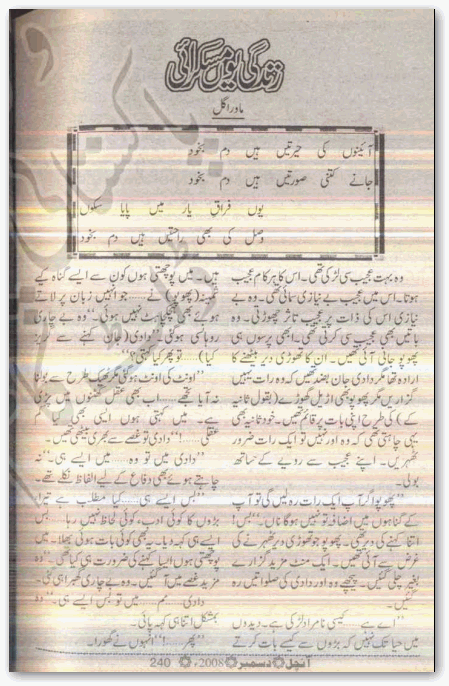 زندگی یوں مسکرائی
ماورا گل
آئینوں کی حیرتیں ہیں دم بخود
جانے کتنی صورتیں ہیں دم بخود
یوں فراقِ یار میں پایا سکوں
وصل کی بھی راحتیں ہیں دم بخود
وہ بہت عجیب سی لڑکی تھی۔ اس کا ہر کام عجیب
ہوتا۔ اس میں عجیب بے نیازی سمائی تھی۔ وہ بے
نیازی اس کی ذات پر عجیب تاثر چھوڑتی۔ وہ
باتیں بھی عجیب سی کرتی تھی۔ ابھی پرسوں ہی
پھوپو جانی آئی تھیں۔ ان کا تھوڑی دیر بیٹھنے کا
ارادہ تھا مگر دادی جان بضد تھیں کہ وہ رات یہیں
گزاریں مگر پھوپو بھی اڑیل گھوڑے (بقول ثانیہ
کے) کی طرح اپنی بات پر قائم تھیں۔ خود ثانیہ بھی
یہی چاہتی تھی کہ وہ اور نہیں تو ایک رات ضرور
ٹھہریں۔ اپنے عجیب سے رویے کے ساتھ
بولی۔
”پھوپو! گر آپ ایک رات رہ لیں گی تو آپ
کے گناہوں میں اضافہ تو نہیں ہوگا ناں۔“ بس!
اتنا کہنے کی دیر تھی۔ پھوپو جو تھوڑی دیر ٹھہرنے کی
غرض سے آئی تھیں۔ ایک منٹ مزید گزارے
بغیر چلی گئیں۔ پیچھے وہ اور دادی کی صلواتیں رہ
گئیں۔
”اے ہے ..... کیسی نامراد لڑکی ہے۔ دیدوں
میں حیا تک نہیں کہ بڑوں سے کیسے بات کرتے
ہیں۔ میں پوچھتی ہوں کون سے ایسے گناہ کیے
(پھوپو) نے ..... جو انہیں زبان پر لاتے
ہوئے بھی ہچکچاہٹ نہیں ہوئی۔“ وہ بے چاری
روہانسی ہوگئی۔ ”دادی (جان کہنے سے گریز
کیا) ..... تو پھر کیا کہتی؟“
”اونٹ کی اونٹ ہوگئی مگر ٹھیک طرح سے بولنا
نہ آیا تجھے ..... اب بھی عقل گھٹنوں میں پڑی
ہے۔ میں کہتی ہوں ایسی بھی کیا کم
عقلی .....!“ دادی تو غصے سے بھری بیٹھی تھیں۔
”دادی میں تو وہ ..... میں ایسے ہی۔“ نہ
چاہتے ہوئے بھی دفاع کے لیے الفاظ نکلے تھے۔
”بس ایسے ہی ..... کیا مطلب ہے تیرا
بڑوں کا کوئی ادب، کوئی لحاظ نہیں رہا ..... بس
ایسے ہی کہہ دیا۔ یہ بھی کوئی بات ہوئی بھلا۔ میں
پوچھتی ہوں ایسا کہنے کی ضرورت ہی کیا تھی۔“ وہ
مزید غصے میں آ گئیں۔ وہ بے چاری گھبرا ہی گئی۔
”دادی ..... مم ..... میں تو بس ایسے ہی۔“ وہ
بمشکل اتنا ہی کہہ پائی۔
”پھر .....!“ انہوں نے گھورا۔
آنچل دسمبر 2008ء 240
پاکستانی